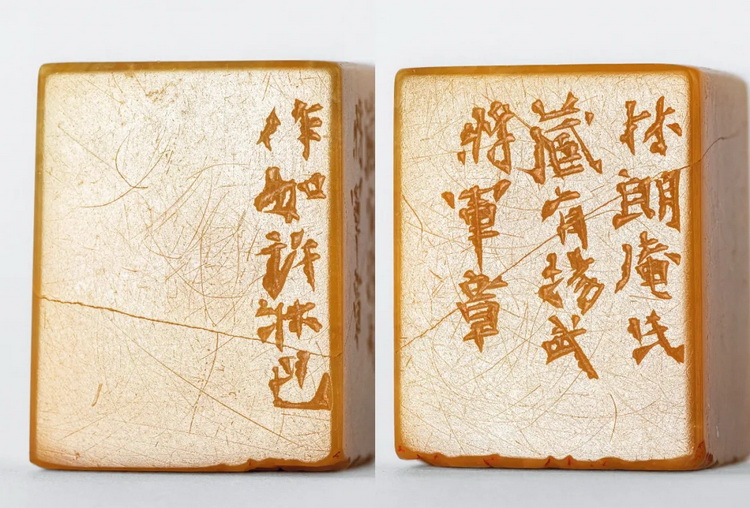 林朗庵氏
藏有揚武
將軍章
作如許